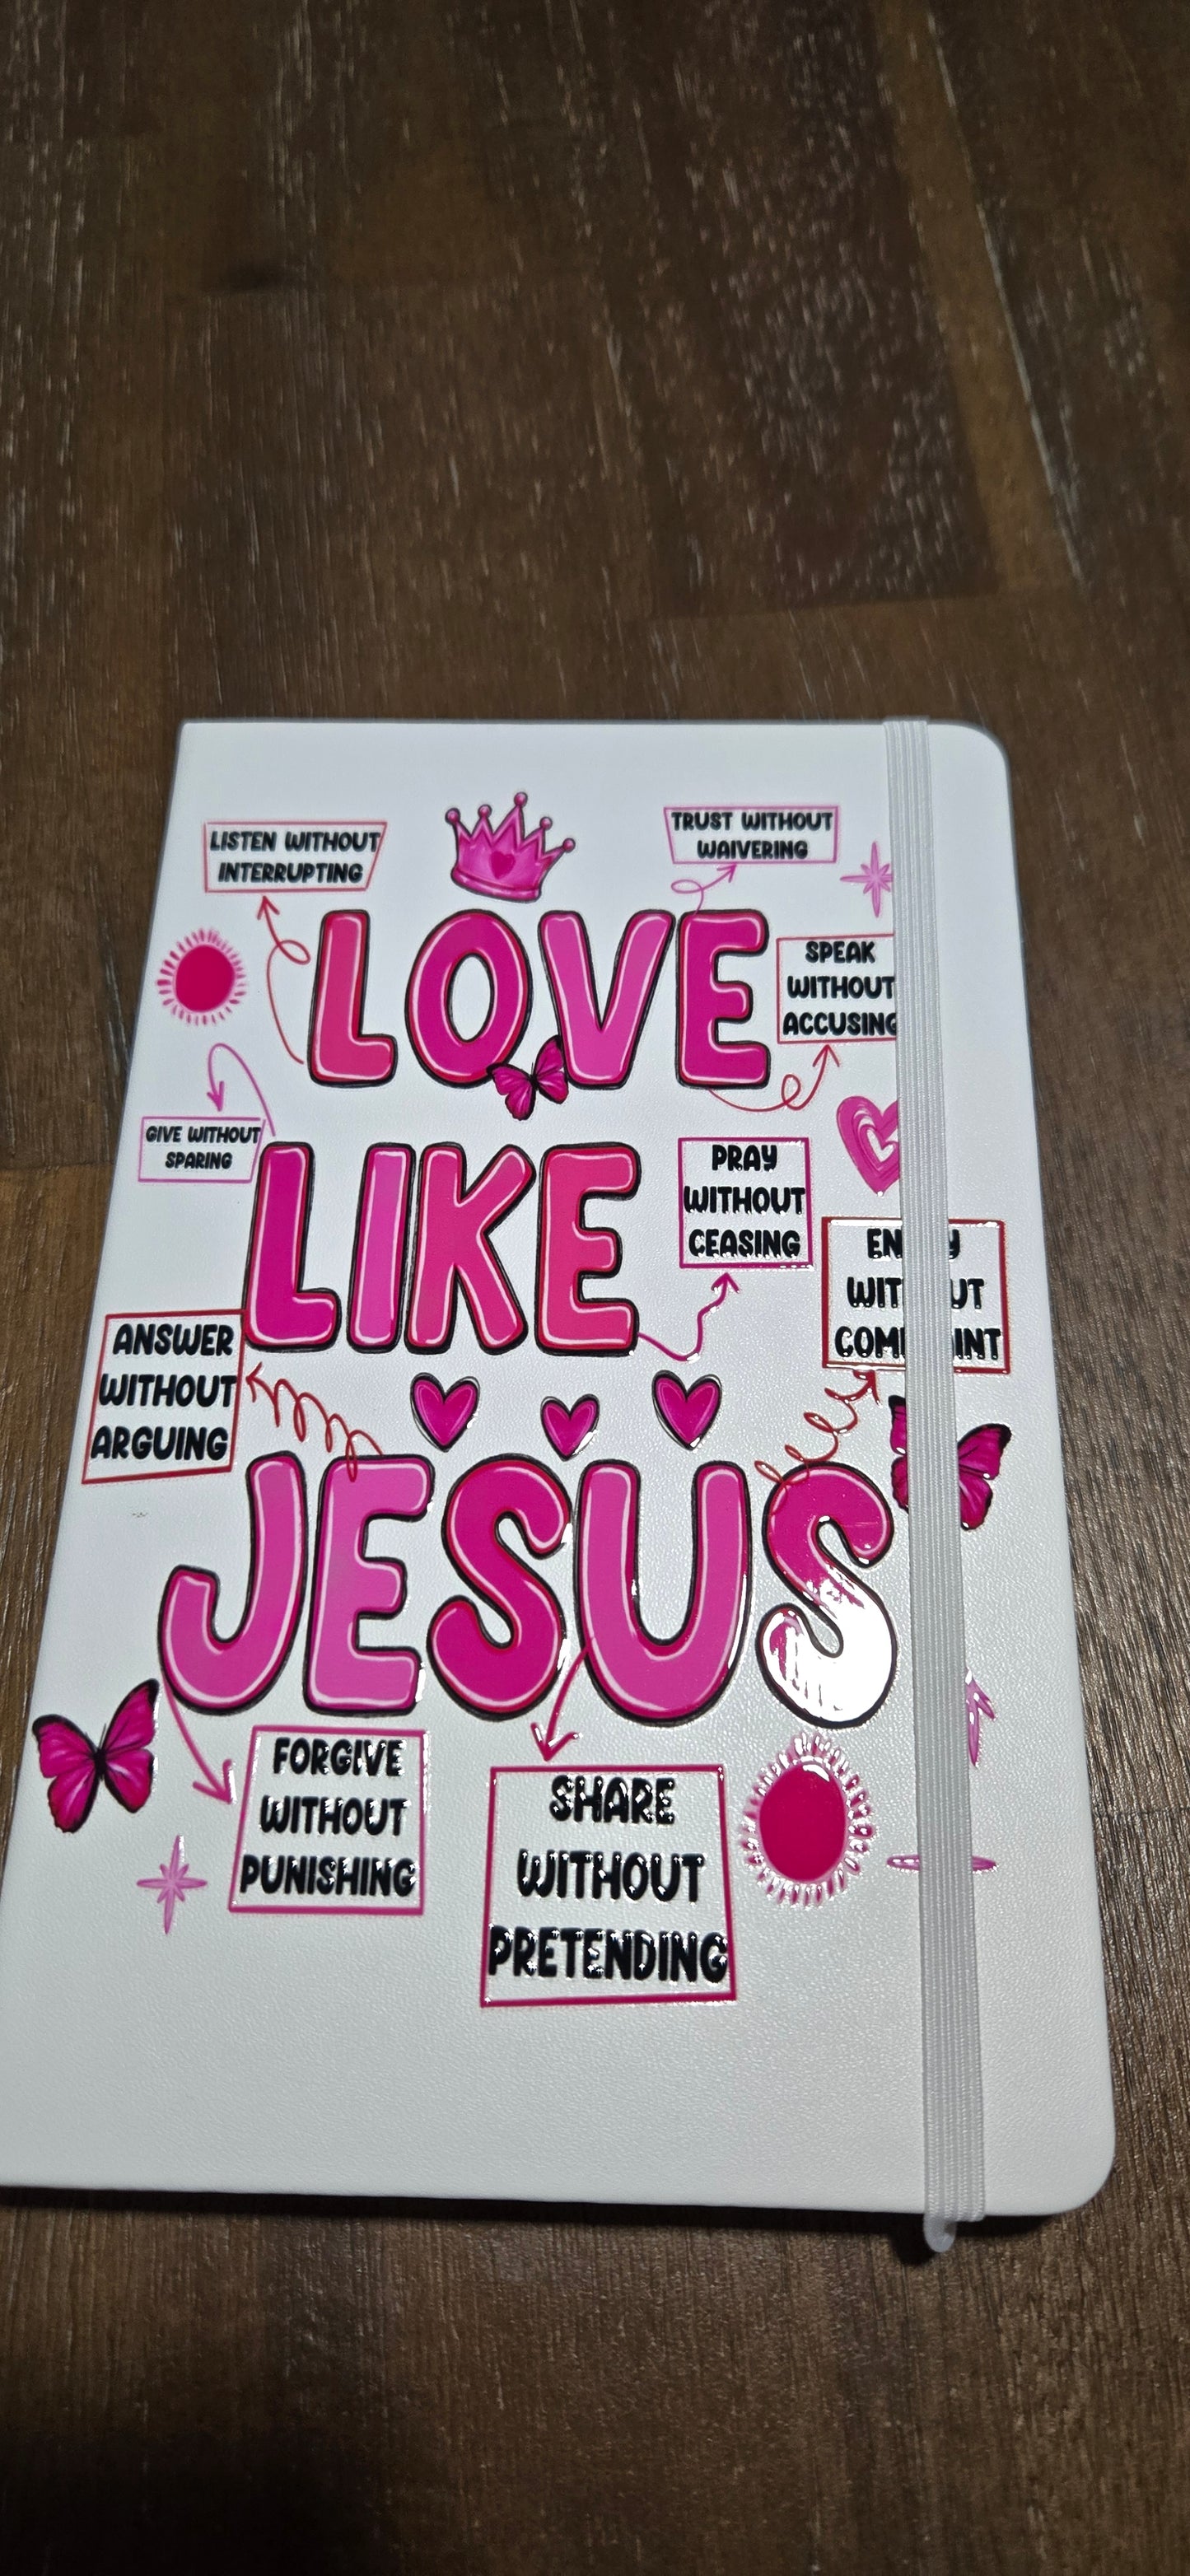 LISTEN WITHOUT
INTERRUPTING
TRUST WITHOUT
WAIVERING
LOVE
SPEAK
WITHOUT
ACCUSING
GIVE WITHOUT
SPARING
LIKE
PRAY
WITHOUT
CEASING
WITHOUT
ANSWER
WITHOUT
ARGUING
JESUS
FORGIVE
WITHOUT
PUNISHING
SHARE
WITHOUT
PRETENDING